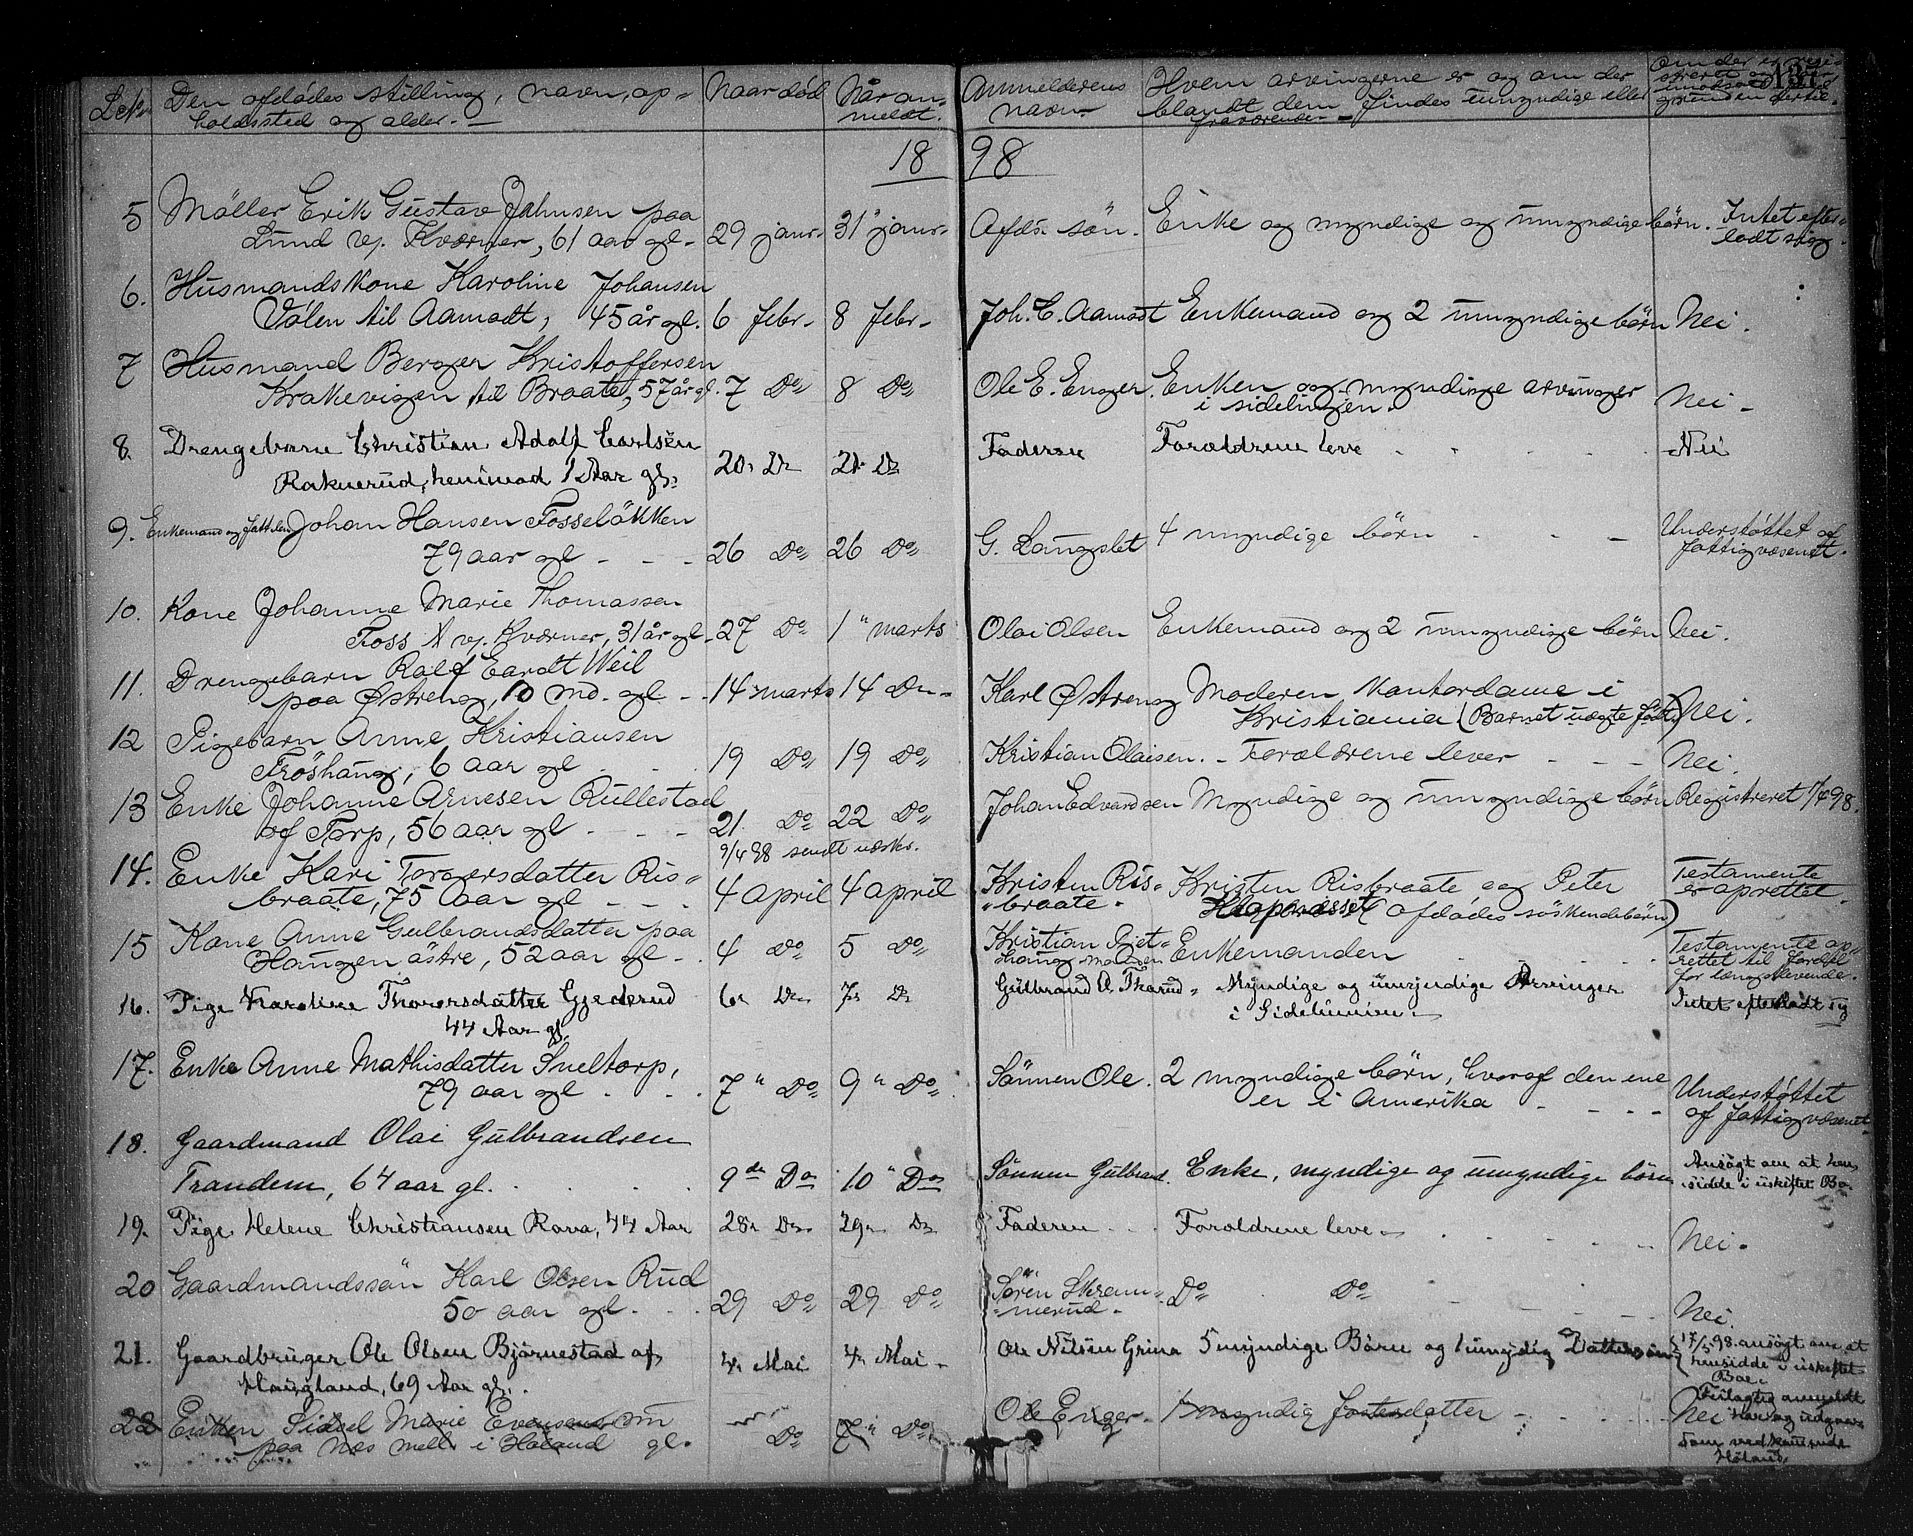 Løb. Den afdødes stilling, navn, op= Naar død Når an= Anmelderens Hvem arvingerne er og om der Om der er regi=
holdssted og alder. meldt. navn. blandt dem findes umyndige eller strert og
fraværende. grunden dertil.
18 98
5 Møller Erik Gustav Jahnsen paa
Lund v/. Kværner, 61 aar gl. 29 janr. 31" janr. Afds. søn. Enke og myndige og umyndige børn. Intet efter=
ladt sig.
6. Husmandskone Karoline Johansen
Vølen til Aamodt, 45 år gl. 6 febr. 8 febr. Joh. C. Aamodt Enkemand og 2 umyndige børn Nei.
7 Husmand Berger Kristoffersen
Krakevigen til Braate, 57 år gl. 7 Do 8 Do Ole E. Enger. Enken og myndige arvinger
i sidelinjen. Nei -
8. Drengebarn Christian Adolf Carlsen
Raknerud, henimod 1 Aar gl. 20. Do 21. Do Faderen Forældrene leve Nei
9. Enkemand og fattilem Johan Hansen Fosseløkken
79 aar gl 26 Do 26 Do G. Langslet 4 myndige børn Understøttet af
fattigvæsenet.
10. Kone Johanne Marie Thomassen
Foss v/. Kværner, 31 år gl. 27 Do 1" marts Olai Olsen Enkemand og 2 umyndige børn Nei.
11. Drengebarn Ralf Weil
paa Østreng, 10 md. gl. 14 marts 14 Do Karl Østreng Moderen kontordame i
Kristiania (Barnet uægte født) Nei.
12 Pigebarn Anne Kristiansen
Frøshaug, 6 aar gl 19 Do 19 Do Kristian Olaisen. Forældrene lever Nei.
13 Enke Johanne Arnesen Rullestad
af Torp, 56 aar gl 21. Do 22 Do Johan Edvardsen Myndige og umyndige børn Registreret 1/4 98.
9/4 98 sendt
14. Enke Kari Torgersdatter Ris=
braate, 75 aar gl 4 april 4 april Kristen Ris=
braate. Kristen Risbraate og Peter
(afdødes søskendebørn) Testamente
er oprettet.
15 Kone Anne Gulbrandsdatter paa
Haugen østre, 52 aar gl 4 Do 5 Do Kristian Enkemanden Testamente op=
rettet til fordel
for længstlevende.
16. Pige Karoline Thorersdatter Gjederud
44 Aar gl. 6. Do 7. Do Gulbrand A. Tharud Myndige og umyndige Arvinger
i Sidelinien Intet efterladt sig
17. Enke Anne Mathisdatter Sneltorp,
79 aar gl. 7" Do 9" Do Sønnen Ole. 2 myndige børn, hvoraf den ene
er i Amerika Understøttet
af fattigvæsenet.
18. Gaardmand Olai Gulbrandsen
Trandem, 64 aar gl. 9de Do 10" Do Sønnen Gulbrand. Enke, myndige og umyndige børn Ansøgt om at hen
sidde i uskiftet Bo.
19. Pige Helene Christiansen Rova, 44 Aar 28. Do 29. Do Faderen Forældrene leve Nei.
20 Gaardmandssøn Karl Olsen Rud
50 aar gl. 29 Do 29 Do Søren Skram=
merud. Do Do Nei.
21. Gaardbruger Ole Olsen Bjørnestad af
Haugland, 69 Aar gl. 4. Mai 4. Mai. Ole Nilsen Grina 5 myndige Børn og 1 umyndig Dattersøn 17/5 98. ansøgt om at
hensidde i uskiftet
Boe.
22 Enken Sidsel Marie Evensen
paa Næs Mell. i Høland gl. Do 7" Do Ole Enger 1 myndig fosterdatter Nei Feilagtig anmeldt
Høland.